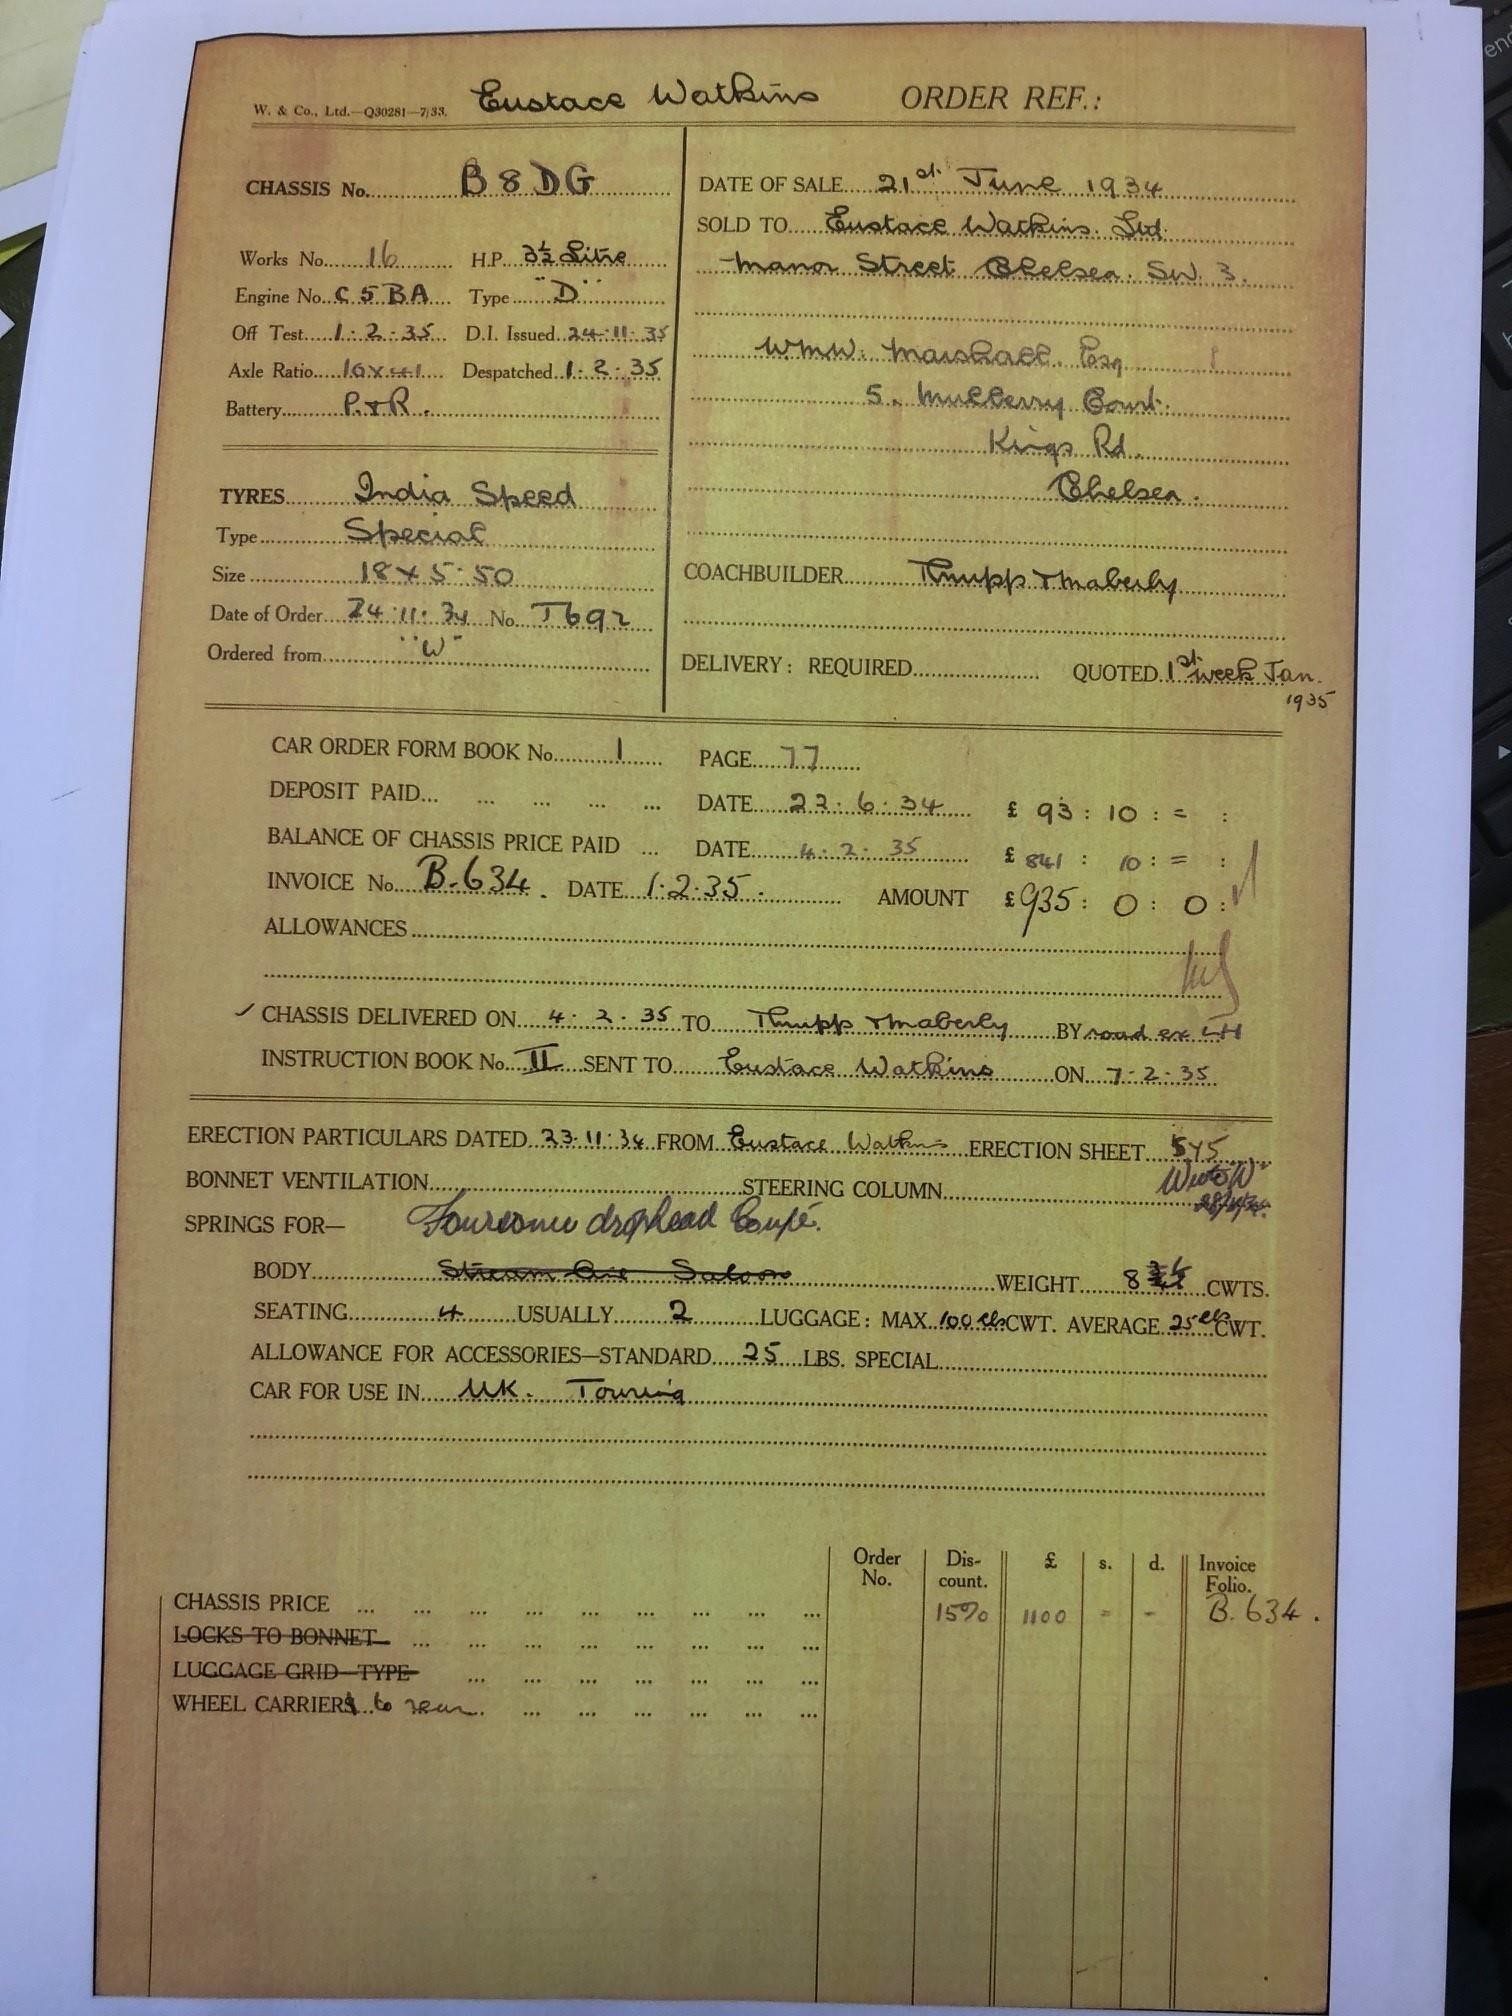 W. & Co., Ltd.—Q30281—7/33. Eustace Watkins ORDER REF.:
CHASSIS No. B8DG
Works No. 16 H.P. 3½ Litre
Engine No. C5BA Type "D"
Off Test 1·2·35 D.I. Issued 24·11·35
Axle Ratio 10x41 Despatched 1·2·35
Battery P.&R.
TYRES India Speed
Type Special
Size 18 x 5·50
Date of Order 24·11·34 No. T692
Ordered from "W"
DATE OF SALE 21st June 1934
SOLD TO Eustace Watkins Ltd.
Manor Street Chelsea. SW. 3.
W.M.W. Marshall. Esq
5. Mulberry Court.
Kings Rd.
Chelsea.
COACHBUILDER Thrupp & Maberly
DELIVERY: REQUIRED QUOTED 1st week Jan.
1935
CAR ORDER FORM BOOK No. 1 PAGE 77
DEPOSIT PAID... ... ... ... ... DATE 22·6·34 £ 93 : 10 : = :
BALANCE OF CHASSIS PRICE PAID ... DATE 4·2·35 £ 841 : 10 : = :
INVOICE No. B.634. DATE 1·2·35. AMOUNT £935 : 0 : 0 :
ALLOWANCES
CHASSIS DELIVERED ON 4·2·35 TO Thrupp & Maberly BY road ex LH
INSTRUCTION BOOK No. II SENT TO Eustace Watkins ON 7·2·35
ERECTION PARTICULARS DATED 23·11·34 FROM Eustace Watkins ERECTION SHEET 5Y5
BONNET VENTILATION STEERING COLUMN
SPRINGS FOR— Foursome drophead Coupé.
BODY Stream Line Saloon WEIGHT 8 CWTS.
SEATING 4 USUALLY 2 LUGGAGE: MAX. 100 lbs CWT. AVERAGE 25 lbs CWT.
ALLOWANCE FOR ACCESSORIES—STANDARD 25 LBS. SPECIAL
CAR FOR USE IN UK. Touring
Order No. Dis-count. £ s. d. Invoice Folio.
CHASSIS PRICE ... ... ... ... ... ... ... ... ... 15% 1100 = - B.634.
LOCKS TO BONNET ... ... ... ... ... ... ... ...
LUGGAGE GRID—TYPE ... ... ... ... ... ... ...
WHEEL CARRIER 1 to rear. ... ... ... ... ... ...